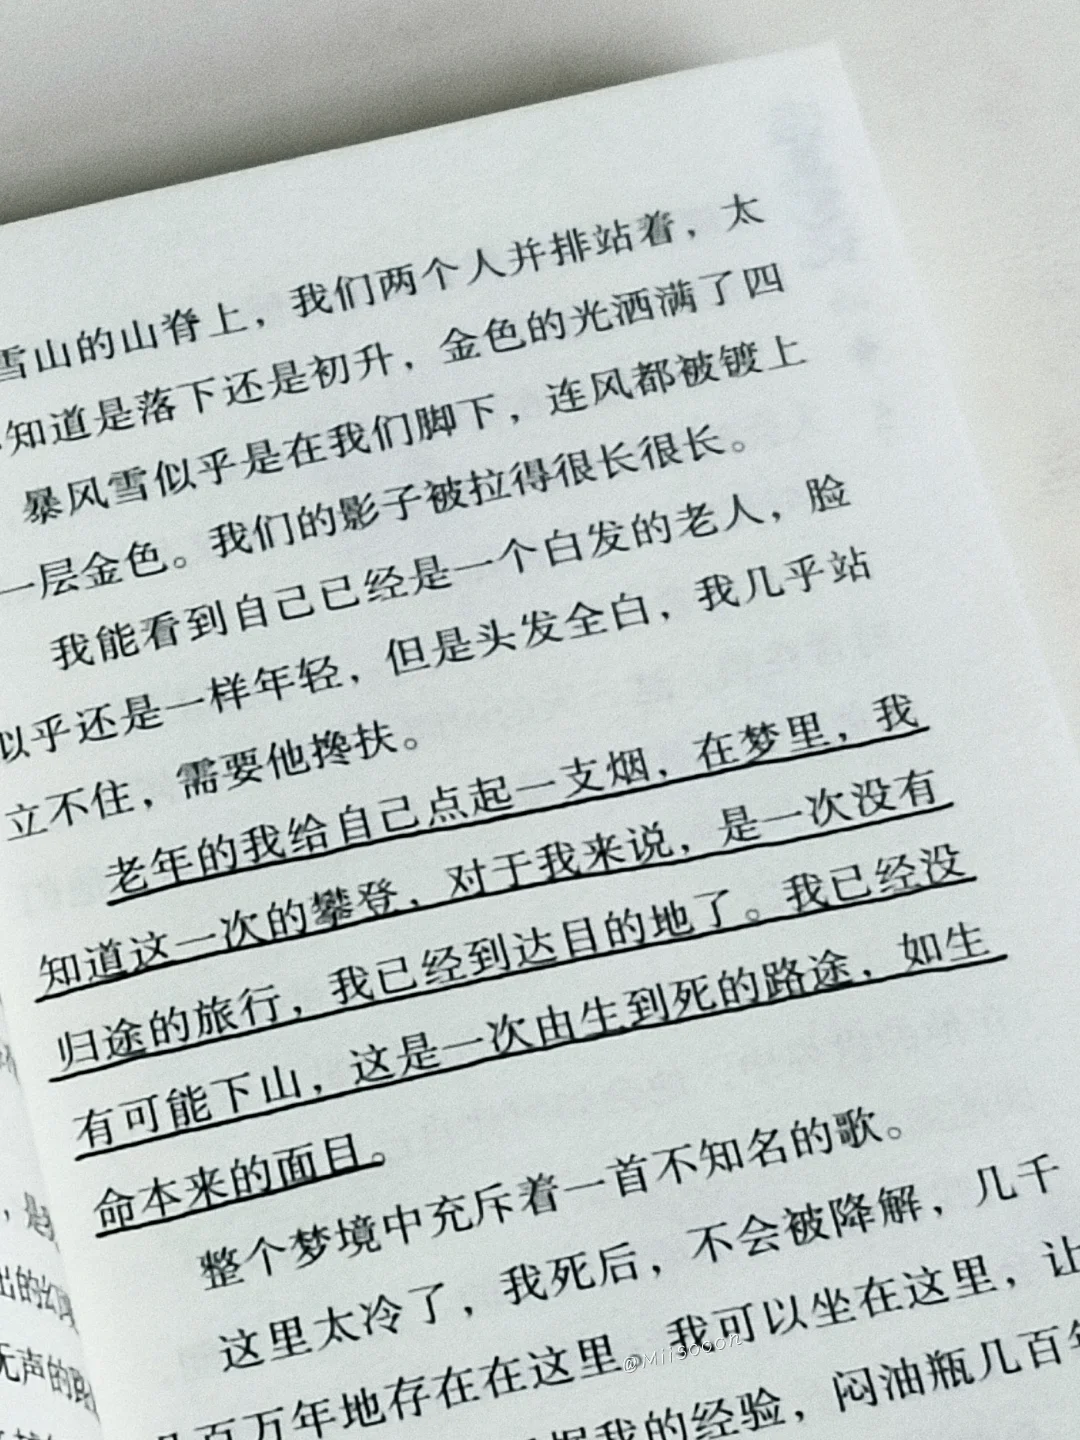 雪山的山脊上，我们两个人并排站着，太
知道是落下还是初升，金色的光洒满了四
暴风雪似乎是在我们脚下，连风都被镀上
一层金色。我们的影子被拉得很长很长。
我能看到自己已经是一个白发的老人，脸
以乎还是一样年轻，但是头发全白，我几乎站
立不住，需要他搀扶。
老年的我给自己点起一支烟，在梦里，我
知道这一次的攀登，对于我来说，是一次没有
归途的旅行，我已经到达目的地了。我已经没
有可能下山，这是一次由生到死的路途，如生
命本来的面目。
整个梦境中充斥着一首不知名的歌。
这里太冷了，我死后，不会被降解，几千
几百万年地存在在这里。我可以坐在这里，让
我的经验，闷油瓶几百年
，是
出的幻
无声的路
@Mii3ooon